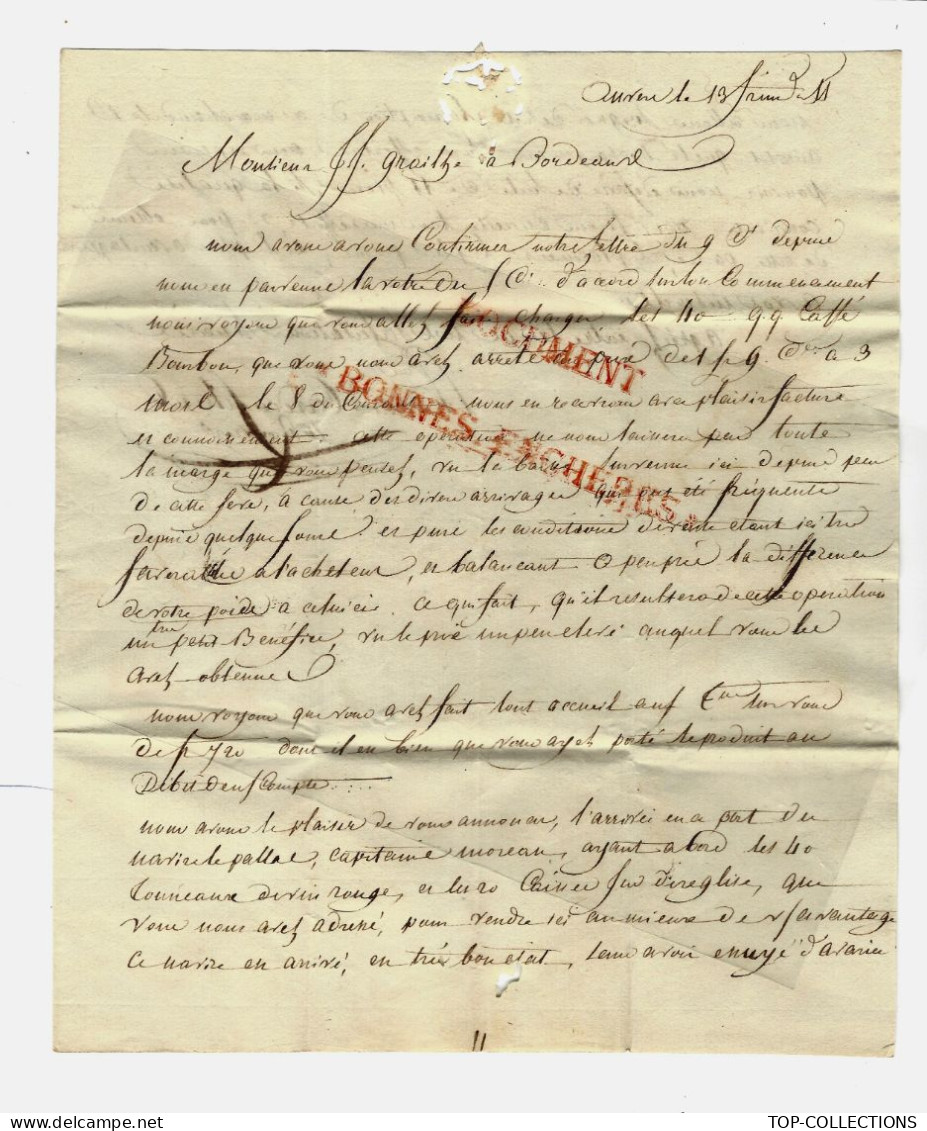 anvers le 13 frim. an 11
Monsieur JJ. graithe à Bordeaux
nous avons avous Confirmer notre lettre du 9 Ct depuis
nous en parvenne la votre du 5 Ct. d'acord sur son Commencement
nous voyons que vous allez faire charger les 40 q.q Caffé
Bourbon, que vous nous avez arrêté au prix de à 3
mois le 8 du Courant. nous en recevrons avec plaisir facture
et connoissement. cette opération ne nous laissera pas toute
la marge que vous pensez, vu la baisse survenue ici depuis peu
de cette feve, à cause des divers arrivages qui ont été fréquents
depuis quelques jours et puis les conditions de vente étant ici très
favorable a l'acheteur, et balancant à peu près la différence
de votre poids à celui ci. ce qui fait, qu'il resultera de cette operation
un très petit Bénéfice, vu le prix un peu elevé auquel vous les
avez obtenue
nous voyons que vous avez fait tout accueil a n/ Tte sur vous
de f 720 dont il en bien que vous ayez porté le produit au
Débit de n/ Compte....
nous avons le plaisir de vous annoncer, l'arrivée en ce port du
navire le pallas, capitaine moreau, ayant a bord les 40
tonneaux de vin rouge, et les 20 Caisses jus d'reglise, que
vous nous avez adressé, pour vendre ici au mieux de v/ avantage
ce navire en arrivé, en très bon état, sans avoir essuyé d'avarie
DOCUMENT
BONNES ENCHERES
TOP-COLLECTIONS